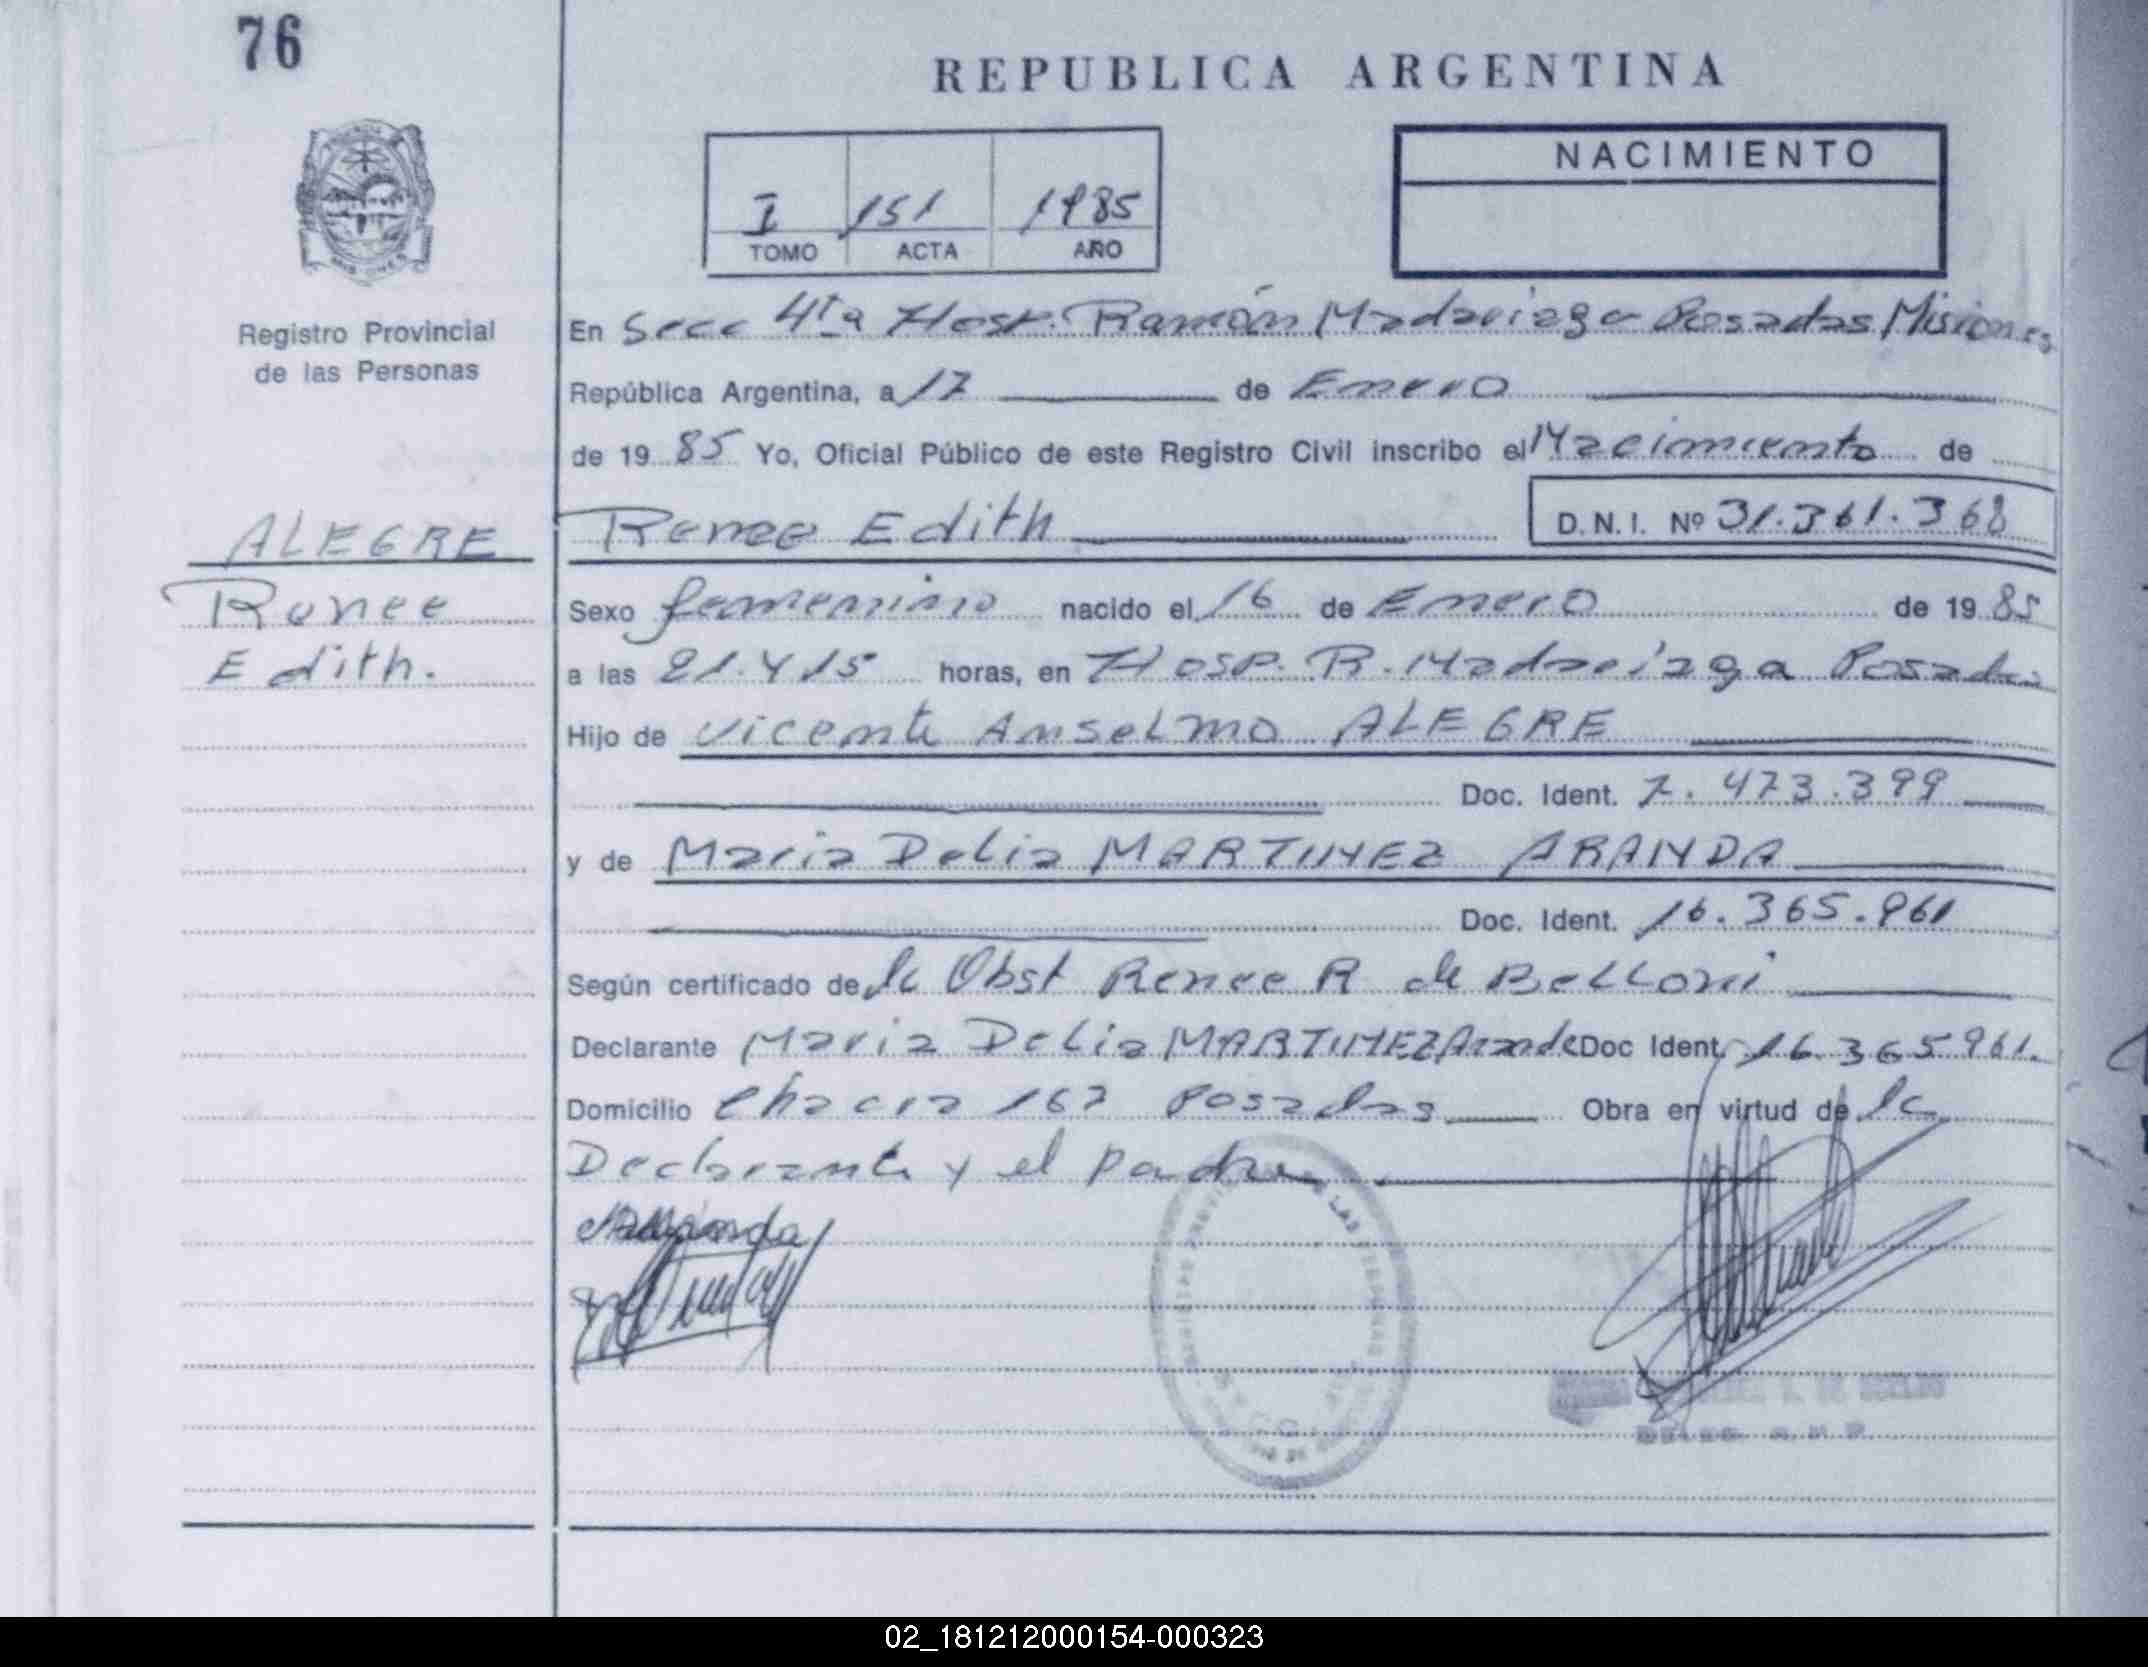 76
REPUBLICA ARGENTINA
NACIMIENTO
I 151 1985
TOMO ACTA AÑO
Registro Provincial
de las Personas
En Secc 4ta Hosp. Ramón Madariaga Posadas Misiones
República Argentina, a 17 de Enero
de 19 85 Yo, Oficial Público de este Registro Civil inscribo el Nacimiento de
ALEGRE
Renee
Edith.
Renee Edith D.N.I. Nº 31.361.368
Sexo femenino nacido el 16 de Enero de 19 85
a las 21.y 15 horas, en Hosp. R. Madariaga Posadas
Hijo de Vicente Anselmo ALEGRE
Doc. Ident. 7.473.399
y de Maria Delia MARTINEZ ARANDA
Doc. Ident. 16.365.961
Según certificado de la Obst Renee R de Belloni
Declarante Maria Delia MARTINEZ Aranda Doc Ident. 16.365961.
Domicilio Chacra 167 Posadas Obra en virtud de la
Declarante y el padre
02_181212000154-000323